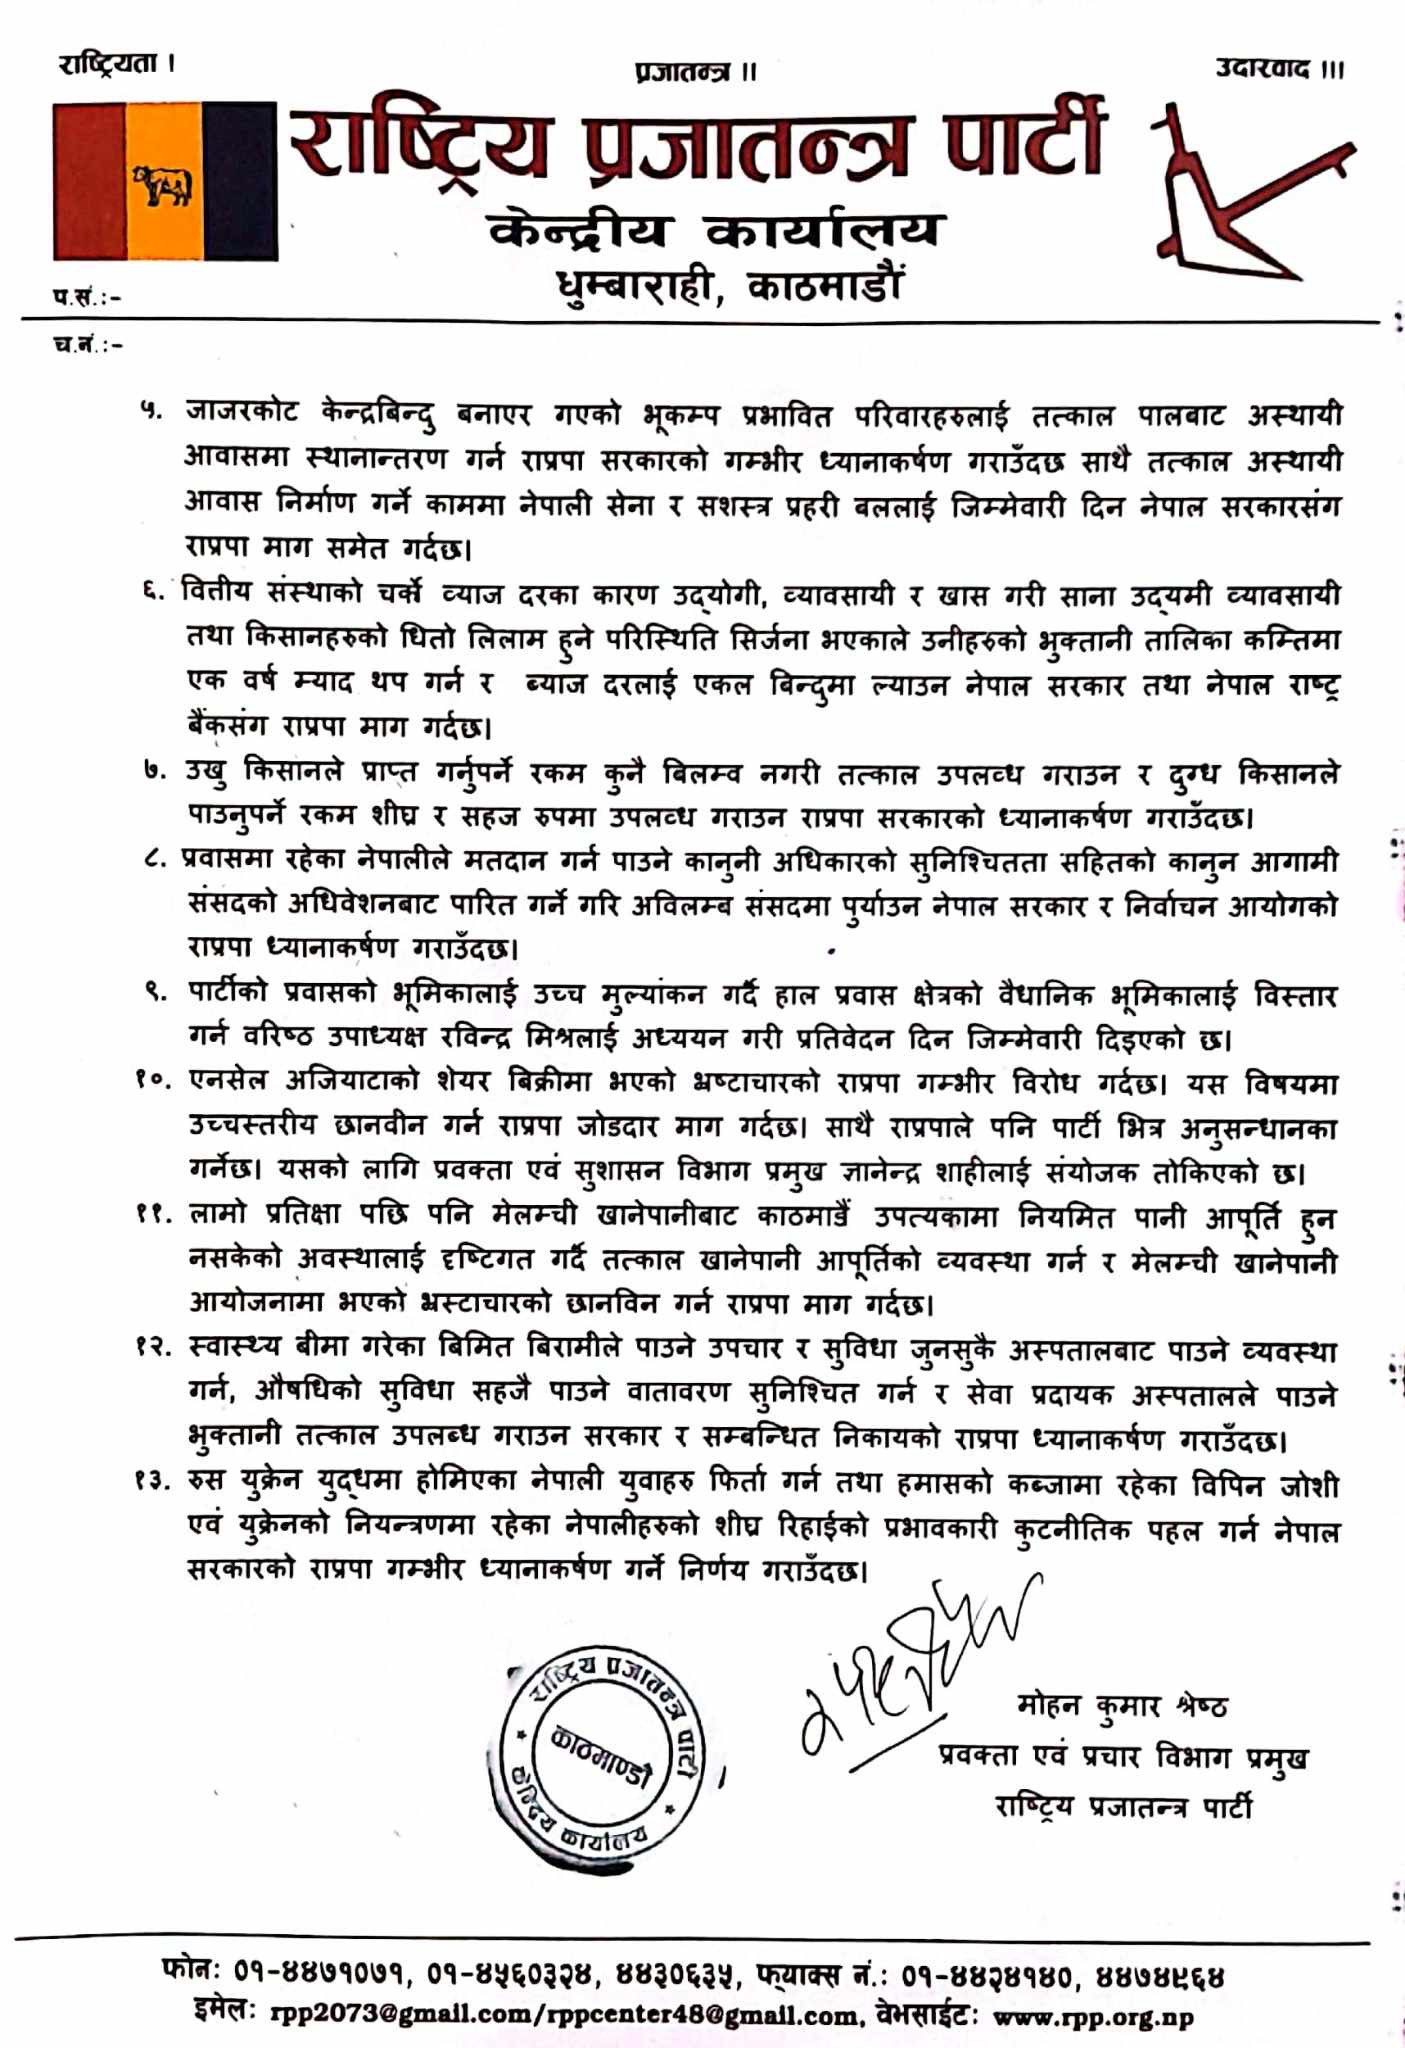 राष्ट्रियता ।
प्रजातन्त्र ॥
उदारवाद ।॥
राष्ट्रिय प्रजातन्त्र पार्टी
केन्द्रीय कार्यालय
धुम्बाराही, काठमाडौं
प.सं.:-
च.नं.:-
५. जाजरकोट केन्द्रबिन्दु बनाएर गएको भूकम्प प्रभावित परिवारहरुलाई तत्काल पालबाट अस्थायी
आवासमा स्थानान्तरण गर्न राप्रपा सरकारको गम्भीर ध्यानाकर्षण गराउँदछ साथै तत्काल अस्थायी
आवास निर्माण गर्ने काममा नेपाली सेना र सशस्त्र प्रहरी बललाई जिम्मेवारी दिन नेपाल सरकारसंग
राप्रपा माग समेत गर्दछ।
६. वितीय संस्थाको चर्को ब्याज दरका कारण उद्योगी, व्यावसायी र खास गरी साना उद्यमी व्यावसायी
तथा किसानहरुको धितो लिलाम हुने परिस्थिति सिर्जना भएकाले उनीहरुको भुक्तानी तालिका कम्तिमा
एक वर्ष म्याद थप गर्न र ब्याज दरलाई एकल बिन्दुमा ल्याउन नेपाल सरकार तथा नेपाल राष्ट्र
बैंकसंग राप्रपा माग गर्दछ।
७. उखु किसानले प्राप्त गर्नुपर्ने रकम कुनै बिलम्व नगरी तत्काल उपलव्ध गराउन र दुग्ध किसानले
पाउनुपर्ने रकम शीघ्र र सहज रुपमा उपलव्ध गराउन राप्रपा सरकारको ध्यानाकर्षण गराउँदछ।
८. प्रवासमा रहेका नेपालीले मतदान गर्न पाउने कानुनी अधिकारको सुनिश्चितता सहितको कानुन आगामी
संसदको अधिवेशनबाट पारित गर्ने गरि अविलम्ब संसदमा पुर्याउन नेपाल सरकार र निर्वाचन आयोगको
राप्रपा ध्यानाकर्षण गराउँदछ।
९. पार्टीको प्रवासको भूमिकालाई उच्च मुल्यांकन गर्दै हाल प्रवास क्षेत्रको वैधानिक भूमिकालाई विस्तार
गर्न वरिष्ठ उपाध्यक्ष रविन्द्र मिश्रलाई अध्ययन गरी प्रतिवेदन दिन जिम्मेवारी दिइएको छ।
१०. एनसेल अजियाटाको शेयर बिक्रीमा भएको भ्रष्टाचारको राप्रपा गम्भीर विरोध गर्दछ। यस विषयमा
उच्चस्तरीय छानवीन गर्न राप्रपा जोडदार माग गर्दछ। साथै राप्रपाले पनि पार्टी भित्र अनुसन्धानका
गर्नेछ। यसको लागि प्रवक्ता एवं सुशासन विभाग प्रमुख ज्ञानेन्द्र शाहीलाई संयोजक तोकिएको छ।
११. लामो प्रतिक्षा पछि पनि मेलम्ची खानेपानीबाट काठमाडौं उपत्यकामा नियमित पानी आपूर्ति हुन
नसकेको अवस्थालाई दृष्टिगत गर्दै तत्काल खानेपानी आपूर्तिको व्यवस्था गर्न र मेलम्ची खानेपानी
आयोजनामा भएको भ्रस्टाचारको छानविन गर्न राप्रपा माग गर्दछ।
१२. स्वास्थ्य बीमा गरेका बिमित बिरामीले पाउने उपचार र सुविधा जुनसुकै अस्पतालबाट पाउने व्यवस्था
गर्न, औषधिको सुविधा सहजै पाउने वातावरण सुनिश्चित गर्न र सेवा प्रदायक अस्पतालले पाउने
भुक्तानी तत्काल उपलब्ध गराउन सरकार र सम्बन्धित निकायको राप्रपा ध्यानाकर्षण गराउँदछ।
१३. रुस युक्रेन युद्धमा होमिएका नेपाली युवाहरु फिर्ता गर्न तथा हमासको कब्जामा रहेका विपिन जोशी
एवं युक्रेनको नियन्त्रणमा रहेका नेपालीहरुको शीघ्र रिहाईको प्रभावकारी कुटनीतिक पहल गर्न नेपाल
सरकारको राप्रपा गम्भीर ध्यानाकर्षण गर्ने निर्णय गराउँदछ।
राष्ट्रिय प्रजातन्त्र पार्टी
काठमाण्डौ
केन्द्रिय कार्यालय
मोहन कुमार श्रेष्ठ
प्रवक्ता एवं प्रचार विभाग प्रमुख
राष्ट्रिय प्रजातन्त्र पार्टी
फोनः ०१-४४७१०७१, ०१-४५६०३२४, ४४३०६३५, फ्याक्स नं.: ०१-४४२४१४०, ४४७४९६४
इमेलः rpp2073@gmail.com/rppcenter48@gmail.com, वेभसाईटः www.rpp.org.np